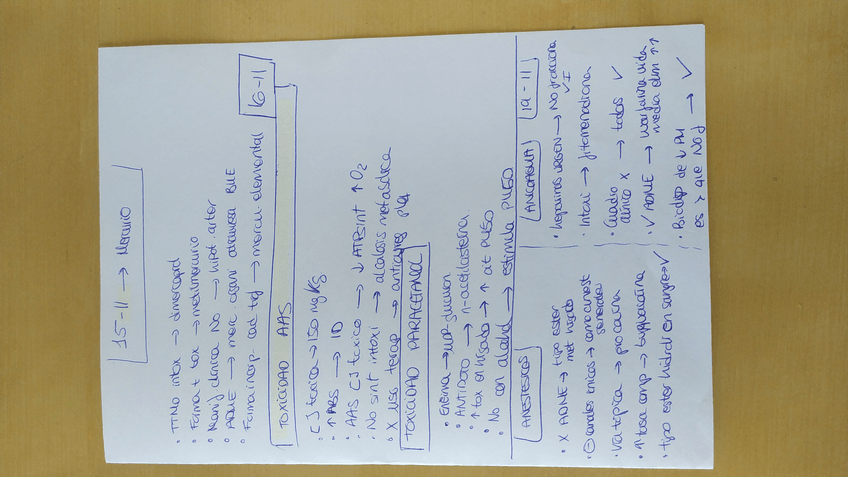 15-11 → Mercurio
• TTMO intox → dimercaprol
• Forma + tox → metilmercurio
• Manif clinica NO → hipot arter
• ADME → merc organi atraviesa BHE
• Forma inorp. cat trof → mercu. elemental
TOXICIDAD AAS
16-11
• [] toxica → 150 mg/kg
• ↑ ABS → ID
• AAS [] toxico → ↓ ATPsint ↑ O2
• No sint intoxi → alcalosis metabólica
• X uso terap → antiagreg plq
TOXICIDAD PARACETAMOL
• Enzima → UDP-glucuron
• ANTIDOTO → n-acetilcisteina
• ↑ tox en hígado → ↑ at P450
• No con alcohol → estimula P450
ANESTESICOS
• X ADME → tipo ester met higado
• ⊖ canales ionicos → como anest generales
• Via topica → procaina
• ↑ tasa comp → bupivacaina
• tipo ester hidrol en sangre → √
ANCOAGULA
19-11
• heparinas URGEN → No fracciona
VI
• Intoxi → fitomenadiona
• Cuadro clinico X → todas √
• √ ADME → warfarina vida media elim ↑↑
• Biodisp de ↓ PM es > que No f → √